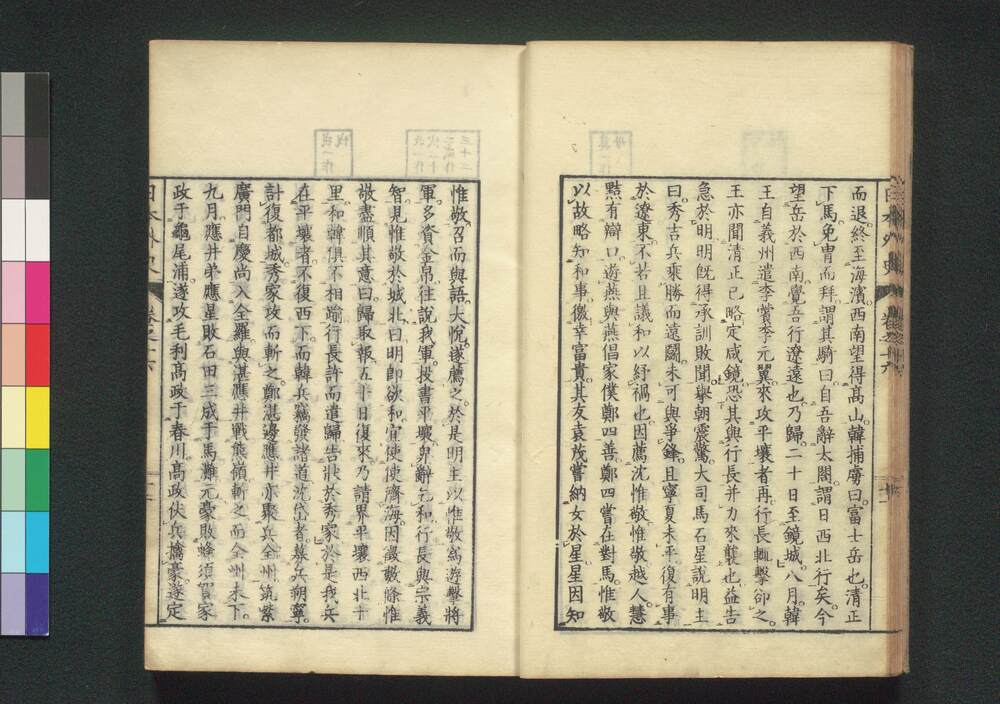 而退。終至海濱。西南望得高山。韓捕虜曰。富士岳也。清正
下馬。免冑而拜。謂其騎曰。自吾辭太閤。謂日西北行矣。今
望岳於西南。覺吾行遼遠也。乃歸。二十日至鏡城。八月。韓
王自義州遣李薲李元翼。來攻平壤者再。行長輒擊卻之。
王亦聞清正已略定咸鏡。恐其與行長并力來襲也。益告
急於明。明既得承訓敗聞。舉朝震驚。大司馬石星說明主
曰。秀吉兵乘勝而遠鬪。未可與爭鋒。且寧夏未平。復有事
於遼東。不若且議和以紓禍也。因薦沈惟敬。惟敬越人。慧
黠有辯口。遊燕與燕倡家僕鄭四善。鄭四嘗在對馬。惟敬
以故略知和事。徼幸富貴。其友袁茂嘗納女於星。星因知
惟敬。召而與語。大悅。遂薦之。於是明主以惟敬爲遊擊將
軍。多資金帛。往說我軍。投書平壤。卑辭乞和。行長與宗義
智。見惟敬於城北。曰。明卽欲和。宜使使濟海。因議數條。惟
敬盡順其意曰。歸取報。五十日復來。乃請界平壤西北十
里。和韓俱不相踰。行長許而遣歸。告狀於秀家。於是我兵
在平壤者。不復西下。而韓兵竊發諸道。沈岱者。募兵朔寧。
計復都城。秀家攻而斬之。鄭湛邊應井亦聚兵全州。筑紫
廣門自慶尚入全羅。與湛應井戰熊嶺斬之。而全州未下。
九月。應井弟應星敗石田三成于馬灘。元豪敗蜂須賀家
政于龜尾浦。遂攻毛利高政于春川。高政伏兵擒豪。遂定
日本外史 卷之十六